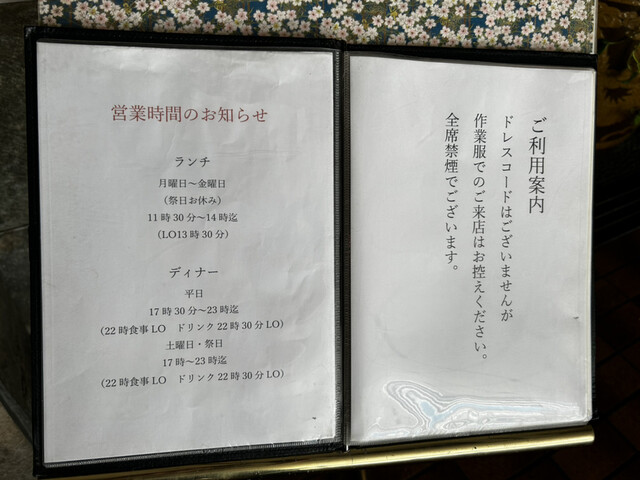 営業時間のお知らせ
ランチ
月曜日～金曜日
（祭日お休み）
11時30分～14時迄
（LO13時30分）
ディナー
平日
17時30分～23時迄
（22時食事LO　ドリンク22時30分LO）
土曜日・祭日
17時～23時迄
（22時食事LO　ドリンク22時30分LO）
ご利用案内
ドレスコードはございませんが
作業服でのご来店はお控えください。
全席禁煙でございます。